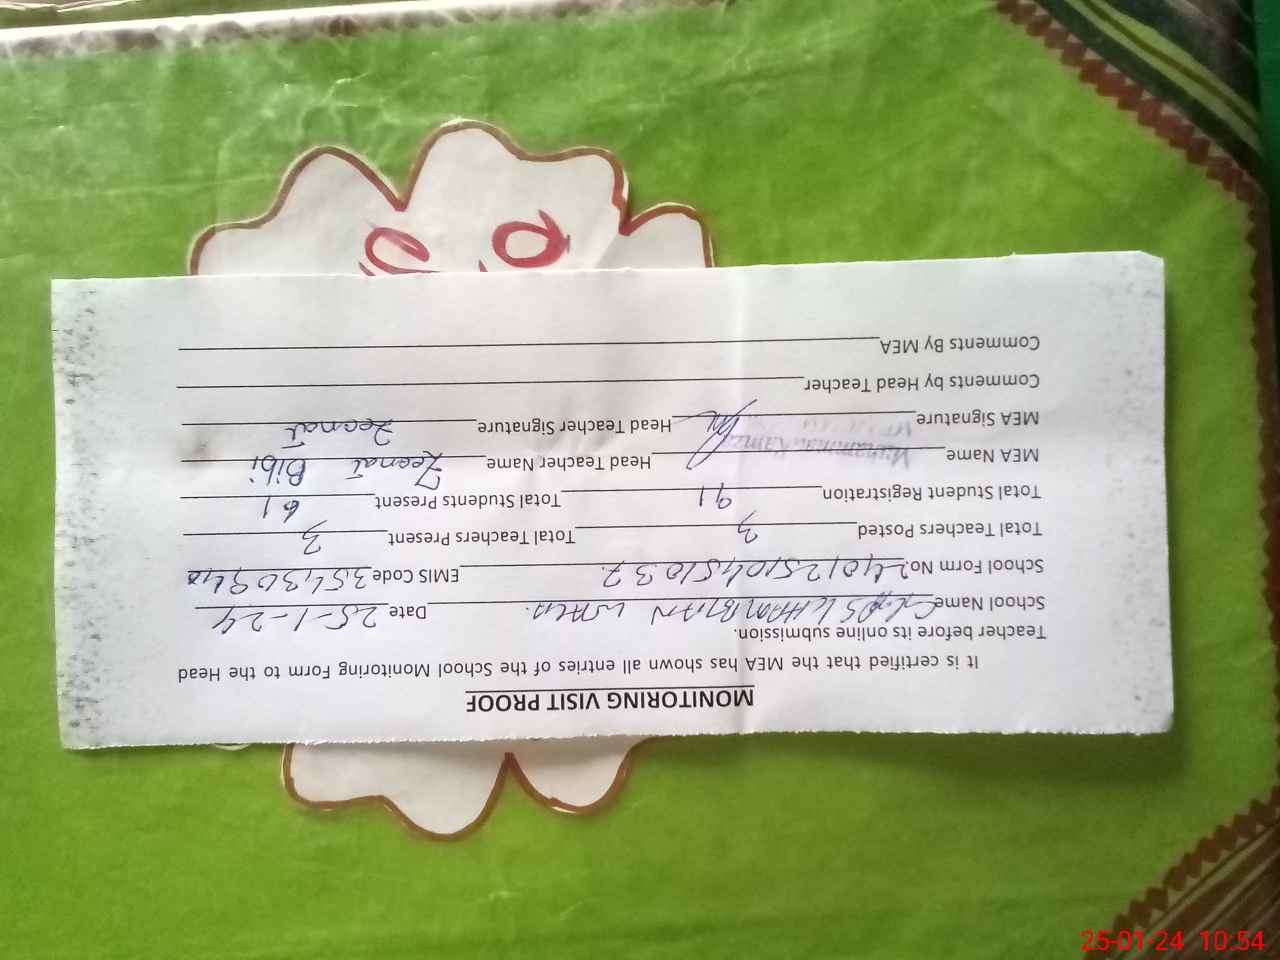 MONITORING VISIT PROOF
It is certified that the MEA has shown all entries of the School Monitoring Form to the Head
Teacher before its online submission.
School Name GGPS KHAMBIAN WALA. Date 25-1-24
School Form No. EMIS Code
Total Teachers Posted 3 Total Teachers Present 3
Total Student Registration 91 Total Students Present 61
MEA Name Muhammad Head Teacher Name Zeenat Bibi
MEA Signature Head Teacher Signature Zeenat
Comments by Head Teacher
Comments By MEA
25-01-24 10:54